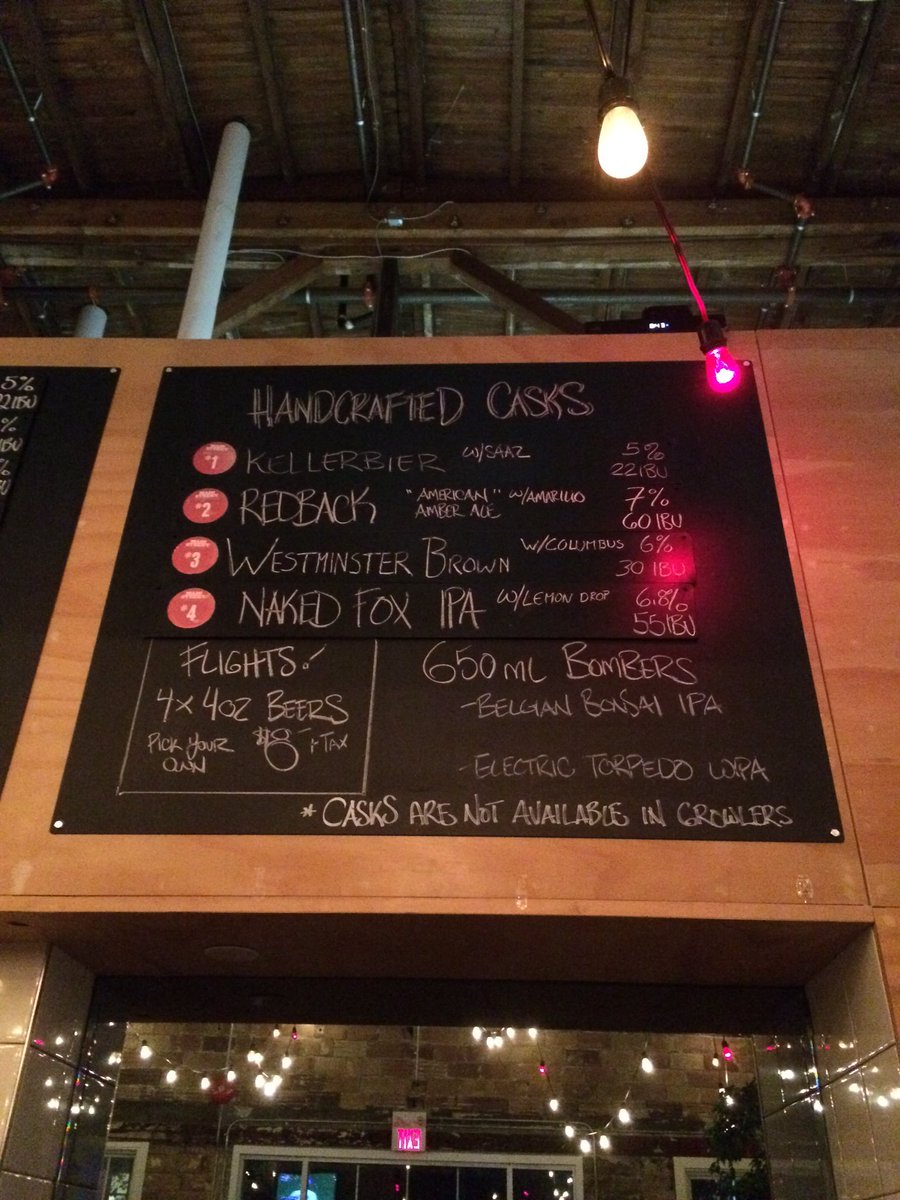 5%
22 IBU
%
IBU
%
IBU
HANDCRAFTED CASKS
#1 KELLERBIER W/SAAZ 5% 22 IBU
#2 REDBACK "AMERICAN" AMBER ALE W/AMARILLO 7% 60 IBU
#3 WESTMINSTER BROWN W/COLUMBUS 6% 30 IBU
#4 NAKED FOX IPA W/LEMON DROP 6.8% 55 IBU
FLIGHTS!
4 x 4OZ BEERS
PICK YOUR OWN $8 + TAX
650ML BOMBERS
- BELGIAN BONSAI IPA
- ELECTRIC TORPEDO WIPA
* CASKS ARE NOT AVAILABLE IN GROWLERS
EXIT